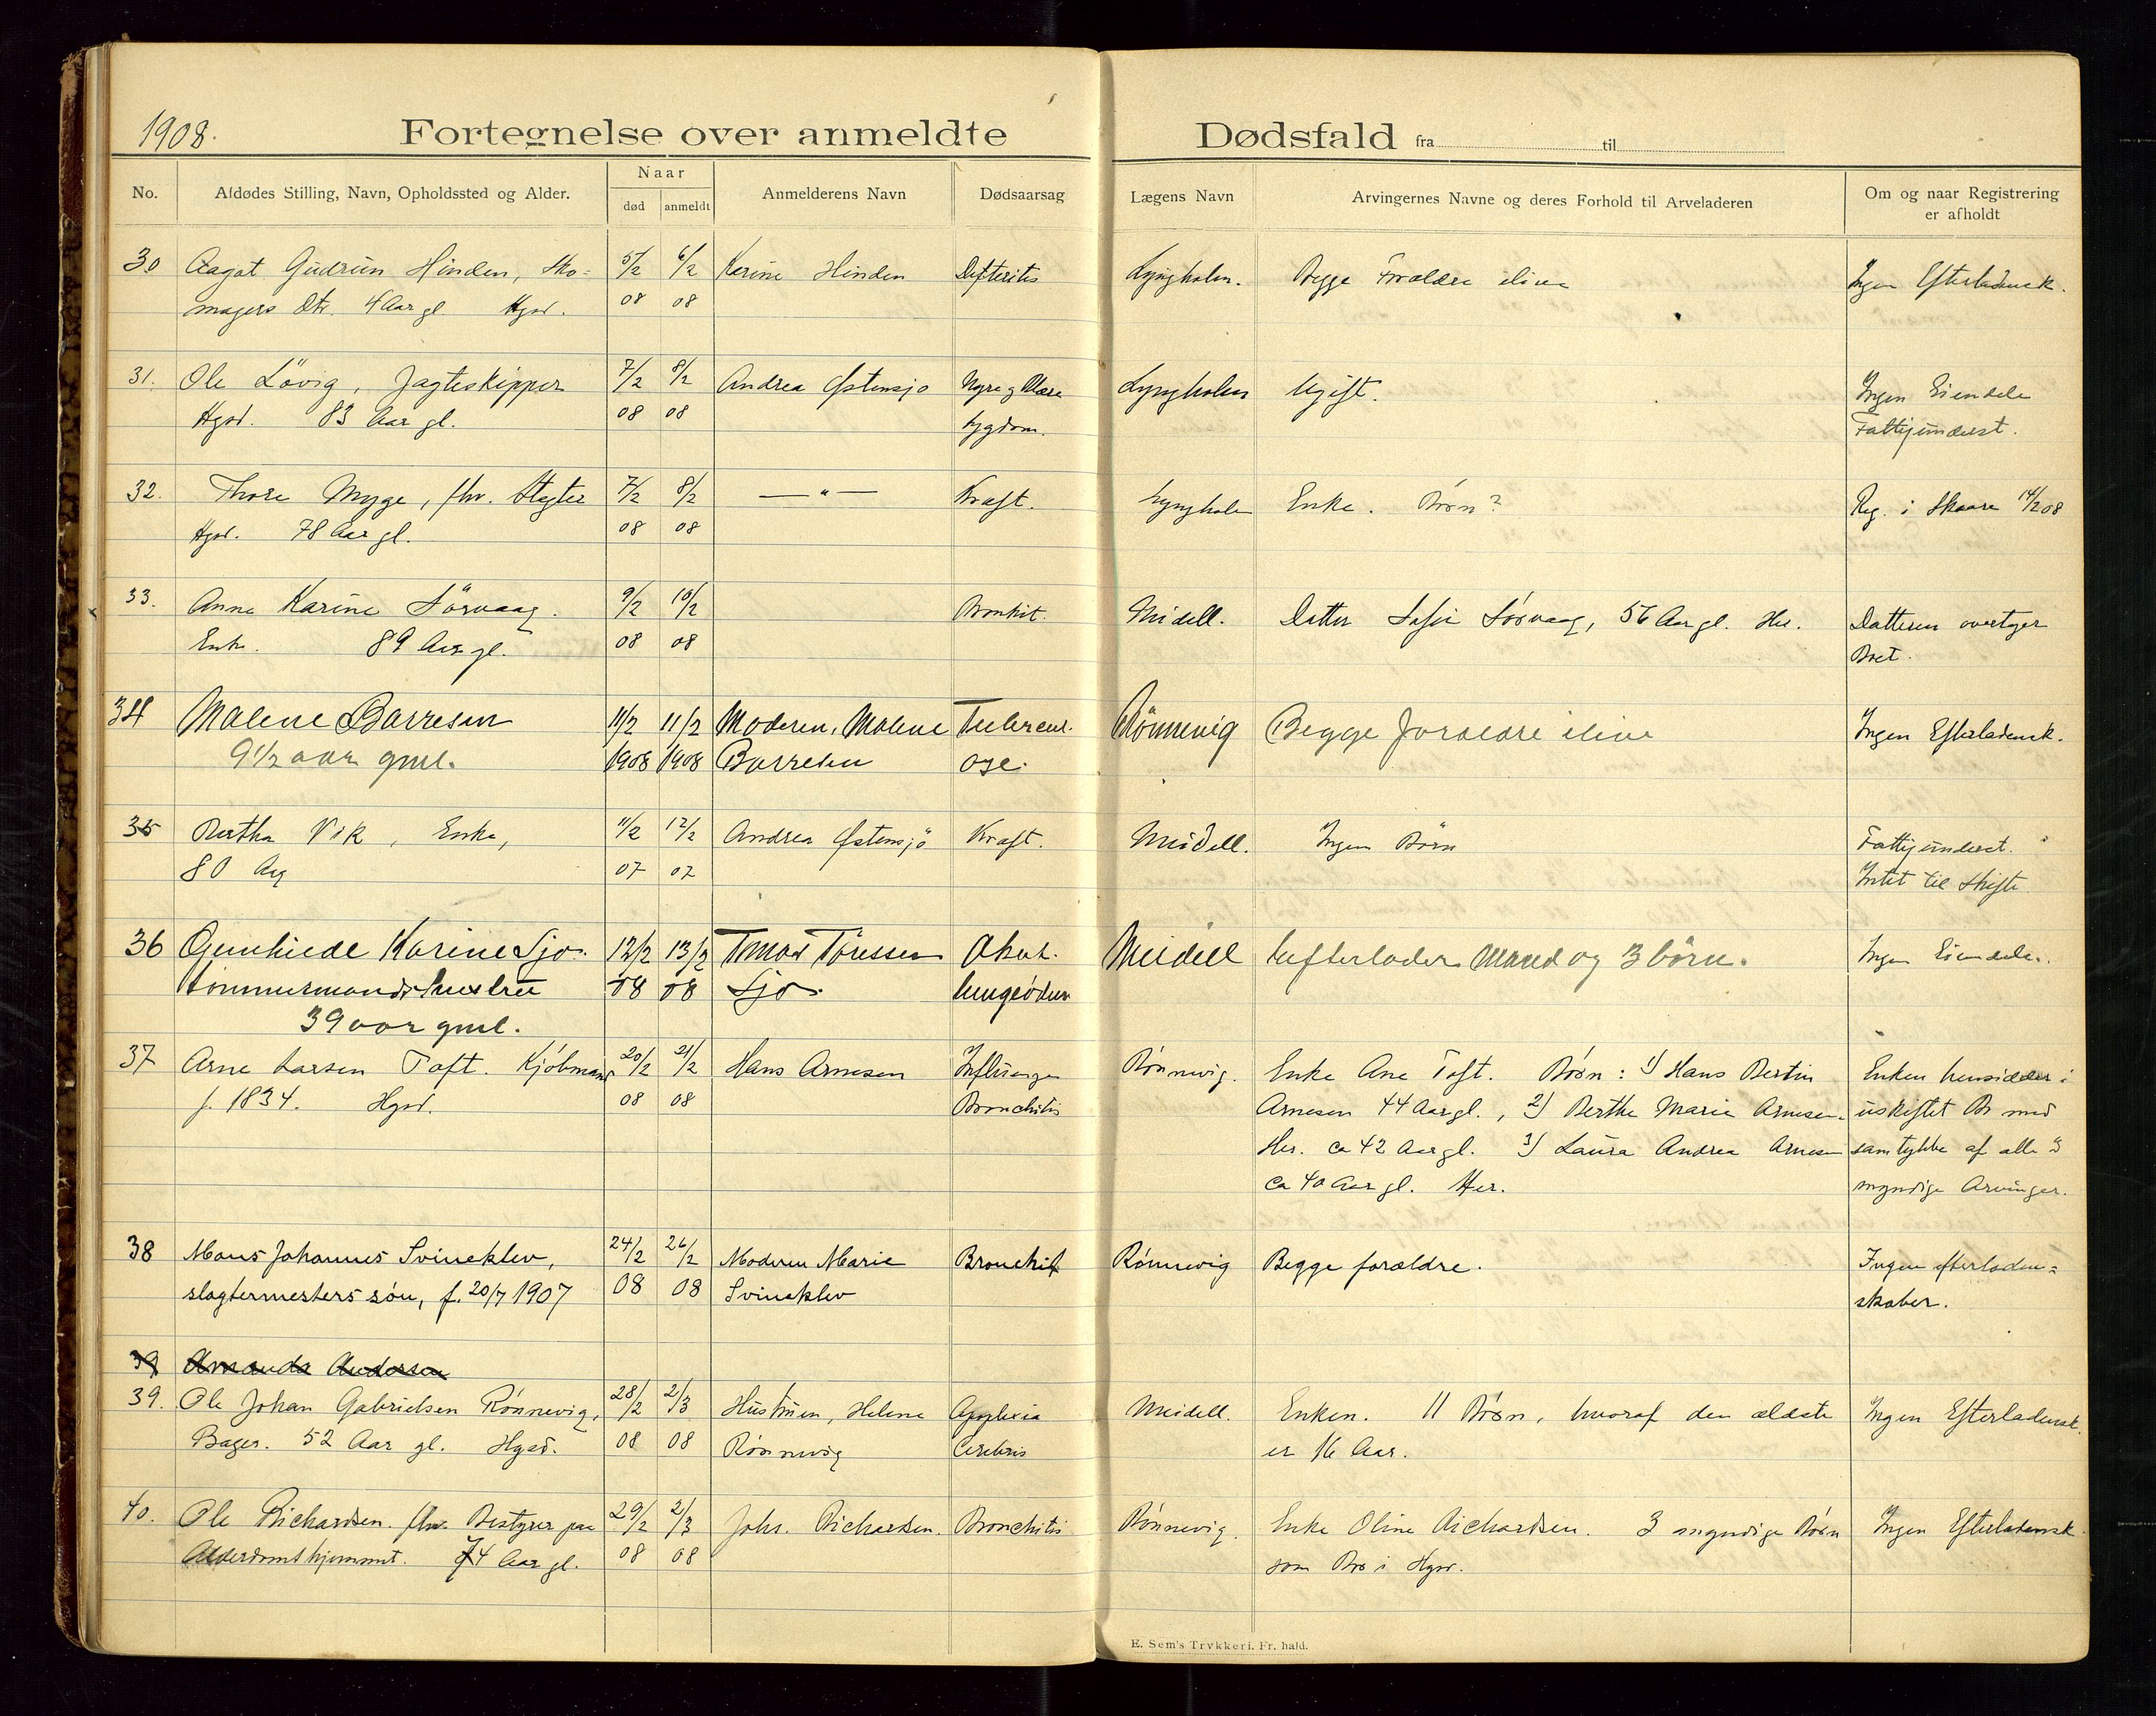 1908.
Fortegnelse over anmeldte Dødsfald fra til
No. Afdødes Stilling, Navn, Opholdssted og Alder. Naar død anmeldt Anmelderens Navn Dødsaarsag Lægens Navn Arvingernes Navne og deres Forhold til Arveladeren Om og naar Registrering er afholdt
30 Aagot Gudrun Hinden, Sko- 5/2 6/2 Karine Hinden Difteritis Lyngholm. Begge Forældre ilive Ingen Efterladensk.
magers Dtr. 4 Aar gl. Hgsd. 08 08
31. Ole Lövig, Jagteskipper 7/2 8/2 Andrea Østensjø Nyre og Blære Lyngholm Ugift. Ingen Eiendele
Hgsd. 83 Aar gl. 08 08 sygdom. Fattigunderst.
32. Thore Mygge, fhv. Slagter 7/2 8/2 — " — Kræft. Lyngholm Enke. Børn? Reg. i Skaare 14/2 08
Hgsd. 78 Aar gl. 08 08
33. Anne Karine Sörvaag. 9/2 10/2 Bronkit. Meidell. Datter Sofie Sörvaag, 56 Aar gl. Her. Datteren overtger
Enke. 89 Aar gl. 08 08 Boet.
34 Malene Barresen 11/2 11/2 Moderen, Malene Tubercul. Rönnevig Begge Foraldre ilive Ingen Efterladensk.
9 1/2 aar gml. 1908 1908 Barresen ose.
35 Bertha Vik, Enke, 11/2 12/2 Andrea Østensjö Kræft. Meidell. Ingen Børn Fattigunderst.
80 Aar 07 07 Intet til Skifte
36 Gunhilde Karine Sjo. 12/2 13/2 Tmas Töressen Akut. Meidell Eefterlader Mand og 3 börn. Ingen Eiendele.
tömmermands hustru 08 08 Sjo. lungeödem
39 aar gml.
37 Arne Larsen Toft. Kjöbmand 20/2 21/2 Hans Arnesen Influenza Rönnevig. Enke Ane Toft. Börn: 1) Hans Bertin Enken hensidder i
f. 1834. Hgsd. 08 08 Bronchitis Arnesen 44 Aar gl., 2) Berthe Marie Arnesen uskiftet Bo med
Her. ca 42 Aar gl. 3) Laura Andrea Arnesen samtykke af alle 3
ca 40 Aar gl. Her. myndige Arvinger.
38 Mons Johannes Svineklev, 24/2 26/2 Moderen Marie Bronchit Rønnevig Begge forældre. Ingen efterladen=
slagtermesters søn, f. 20/7 1907 08 08 Svineklev skaber.
39 Amanda Andersen
39. Ole Johan Gabrielsen Rönnevig, 28/2 2/3 Hustruen, Helene Apoplexia Meidell. Enken. 11 Börn, hvoraf den ældste Ingen Efterladensk.
Bager. 52 Aar gl. Hgsd. 08 08 Rönnevig Cerebris er 16 Aar.
40. Ole Richardsen. fhv. Bestyrer paa 29/2 2/3 Johs. Richardsen. Bronchitis Rönnevig. Enke Oline Richardsen. 3 myndige Börn Ingen Efterladensk
Alderdomshjemmet. 74 Aar gl. 08 08 som Bor i Hgsd.
E. Sem's Trykkeri, Fr. hald.